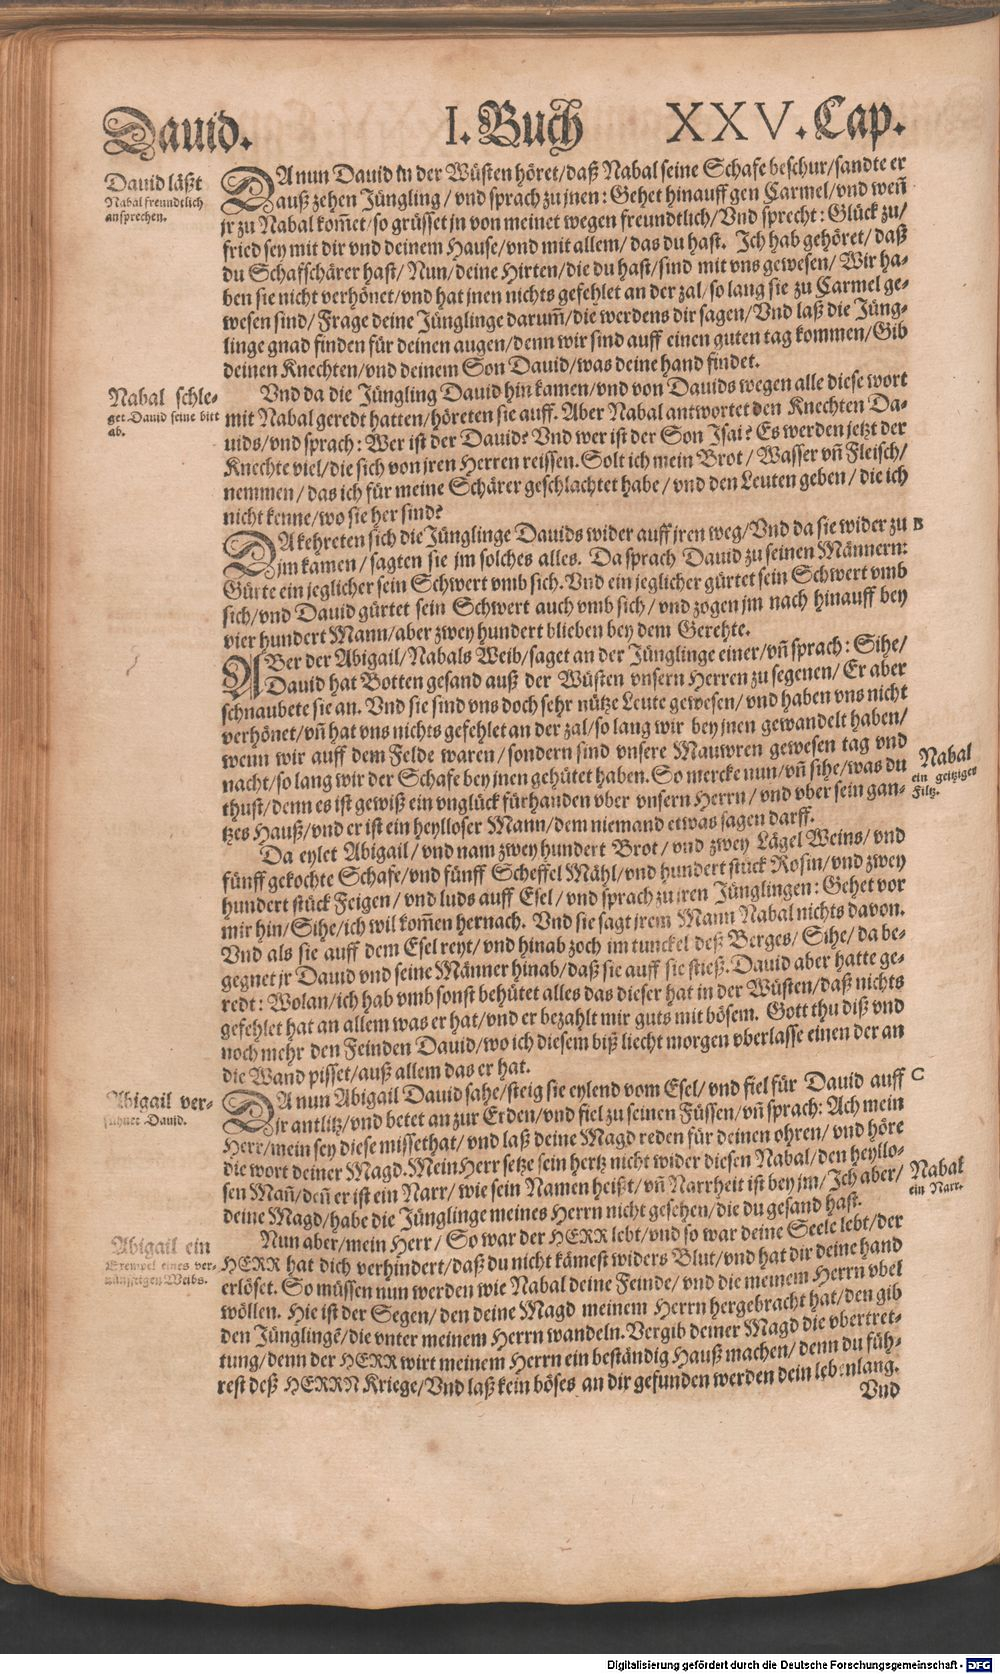 Dauid.
I. Buch
XXV. Cap.
Dauid läßt
Nabal freundtlich
ansprechen.
DA nun Dauid in der Wüsten höret/daß Nabal seine Schafe beschur/sandte er
auß zehen Jüngling/vnd sprach zu jnen: Gehet hinauff gen Carmel/vnd weñ
jr zu Nabal kom̃et/so grüsset jn von meinet wegen freundtlich/Vnd sprecht: Glück zu/
fried sey mit dir vnd deinem Hause/vnd mit allem/das du hast. Ich hab gehöret/daß
du Schafschärer hast/Nun/deine Hirten/die du hast/sind mit vns gewesen/Wir ha-
ben sie nicht verhönet/vnd hat jnen nichts gefehlet an der zal/so lang sie zu Carmel ge-
wesen sind/Frage deine Jünglinge darum̃/die werdens dir sagen/Vnd laß die Jüng-
linge gnad finden für deinen augen/denn wir sind auff einen guten tag kommen/Gib
deinen Knechten/vnd deinem Son Dauid/was deine hand findet.
Nabal schle-
get Dauid seine bitt
ab.
Vnd da die Jüngling Dauid hin kamen/vnd von Dauids wegen alle diese wort
mit Nabal geredt hatten/höreten sie auff. Aber Nabal antwortet den Knechten Da-
uids/vnd sprach: Wer ist der Dauid? Vnd wer ist der Son Isai? Es werden jetzt der
Knechte viel/die sich von jren Herren reissen. Solt ich mein Brot/Wasser vñ Fleisch/
nemmen/das ich für meine Schärer geschlachtet habe/vnd den Leuten geben/die ich
nicht kenne/wo sie her sind?
DA kehreten sich die Jünglinge Dauids wider auff jren weg/Vnd da sie wider zu B
jm kamen/sagten sie jm solches alles. Da sprach Dauid zu seinen Männern:
Gürte ein jeglicher sein Schwert vmb sich. Vnd ein jeglicher gürtet sein Schwert vmb
sich/vnd Dauid gürtet sein Schwert auch vmb sich/vnd zogen jm nach hinauff bey
vier hundert Mann/aber zwey hundert blieben bey dem Gerehte.
ABer der Abigail/Nabals Weib/saget an der Jünglinge einer/vñ sprach: Sihe/
Dauid hat Botten gesand auß der Wüsten vnsern Herren zu segenen/Er aber
schnaubete sie an. Vnd sie sind vns doch sehr nütze Leute gewesen/vnd haben vns nicht
verhönet/vñ hat vns nichts gefehlet an der zal/so lang wir bey jnen gewandelt haben/
wenn wir auff dem Felde waren/sondern sind vnsere Mauwren gewesen tag vnd
nacht/so lang wir der Schafe bey jnen gehütet haben. So mercke nun/vñ sihe/was du
thust/denn es ist gewiß ein vnglück fürhanden vber vnsern Herrn/vnd vber sein gan-
tzes Hauß/vnd er ist ein heylloser Mann/dem niemand etwas sagen darff.
Nabal
ein geitziger
Filtz.
Da eylet Abigail/vnd nam zwey hundert Brot/vnd zwey Lägel Weins/vnd
fünff gekochte Schafe/vnd fünff Scheffel Mähl/vnd hundert stück Rosin/vnd zwey
hundert stück Feigen/vnd luds auff Esel/vnd sprach zu iren Jünglingen: Gehet vor
mir hin/Sihe/ich wil kom̃en hernach. Vnd sie sagt jrem Mann Nabal nichts davon.
Vnd als sie auff dem Esel reyt/vnd hinab zoch im tunckel deß Berges/Sihe/da be-
gegnet jr Dauid vnd seine Männer hinab/daß sie auff sie stieß. Dauid aber hatte ge-
redt: Wolan/ich hab vmb sonst behütet alles das dieser hat in der Wüsten/daß nichts
gefehlet hat an allem was er hat/vnd er bezahlt mir guts mit bösem. Gott thu diß vnd
noch mehr den Feinden Dauid/wo ich diesem biß liecht morgen vberlasse einen der an
die Wand pisset/auß allem das er hat.
Abigail ver-
sühnet Dauid.
DA nun Abigail Dauid sahe/steig sie eylend vom Esel/vnd fiel für Dauid auff C
jr antlitz/vnd betet an zur Erden/vnd fiel zu seinen Füssen/vñ sprach: Ach mein
Herr/mein sey diese missethat/vnd laß deine Magd reden für deinen ohren/vnd höre
die wort deiner Magd. Mein Herr setze sein hertz nicht wider diesen Nabal/den heyllo-
sen Mañ/deñ er ist ein Narr/wie sein Namen heißt/vñ Narrheit ist bey jm/Ich aber/
deine Magd/habe die Jünglinge meines Herrn nicht gesehen/die du gesand hast.
Nabal
ein Narr.
Abigail ein
Exempel eines ver-
nünfftigen Weibs.
Nun aber/mein Herr/So war der HERR lebt/vnd so war deine Seele lebt/der
HERR hat dich verhindert/daß du nicht kämest widers Blut/vnd hat dir deine hand
erlöset. So müssen nun werden wie Nabal deine Feinde/vnd die meinem Herrn vbel
wöllen. Hie ist der Segen/den deine Magd meinem Herrn hergebracht hat/den gib
den Jünglingẽ/die vnter meinem Herrn wandeln. Vergib deiner Magd die vbertret-
tung/denn der HERR wirt meinem Herrn ein beständig Hauß machen/denn du füh-
rest deß HERRN Kriege/Vnd laß kein böses an dir gefunden werden dein lebenlang.
Vnd
Digitalisierung gefördert durch die Deutsche Forschungsgemeinschaft - DFG